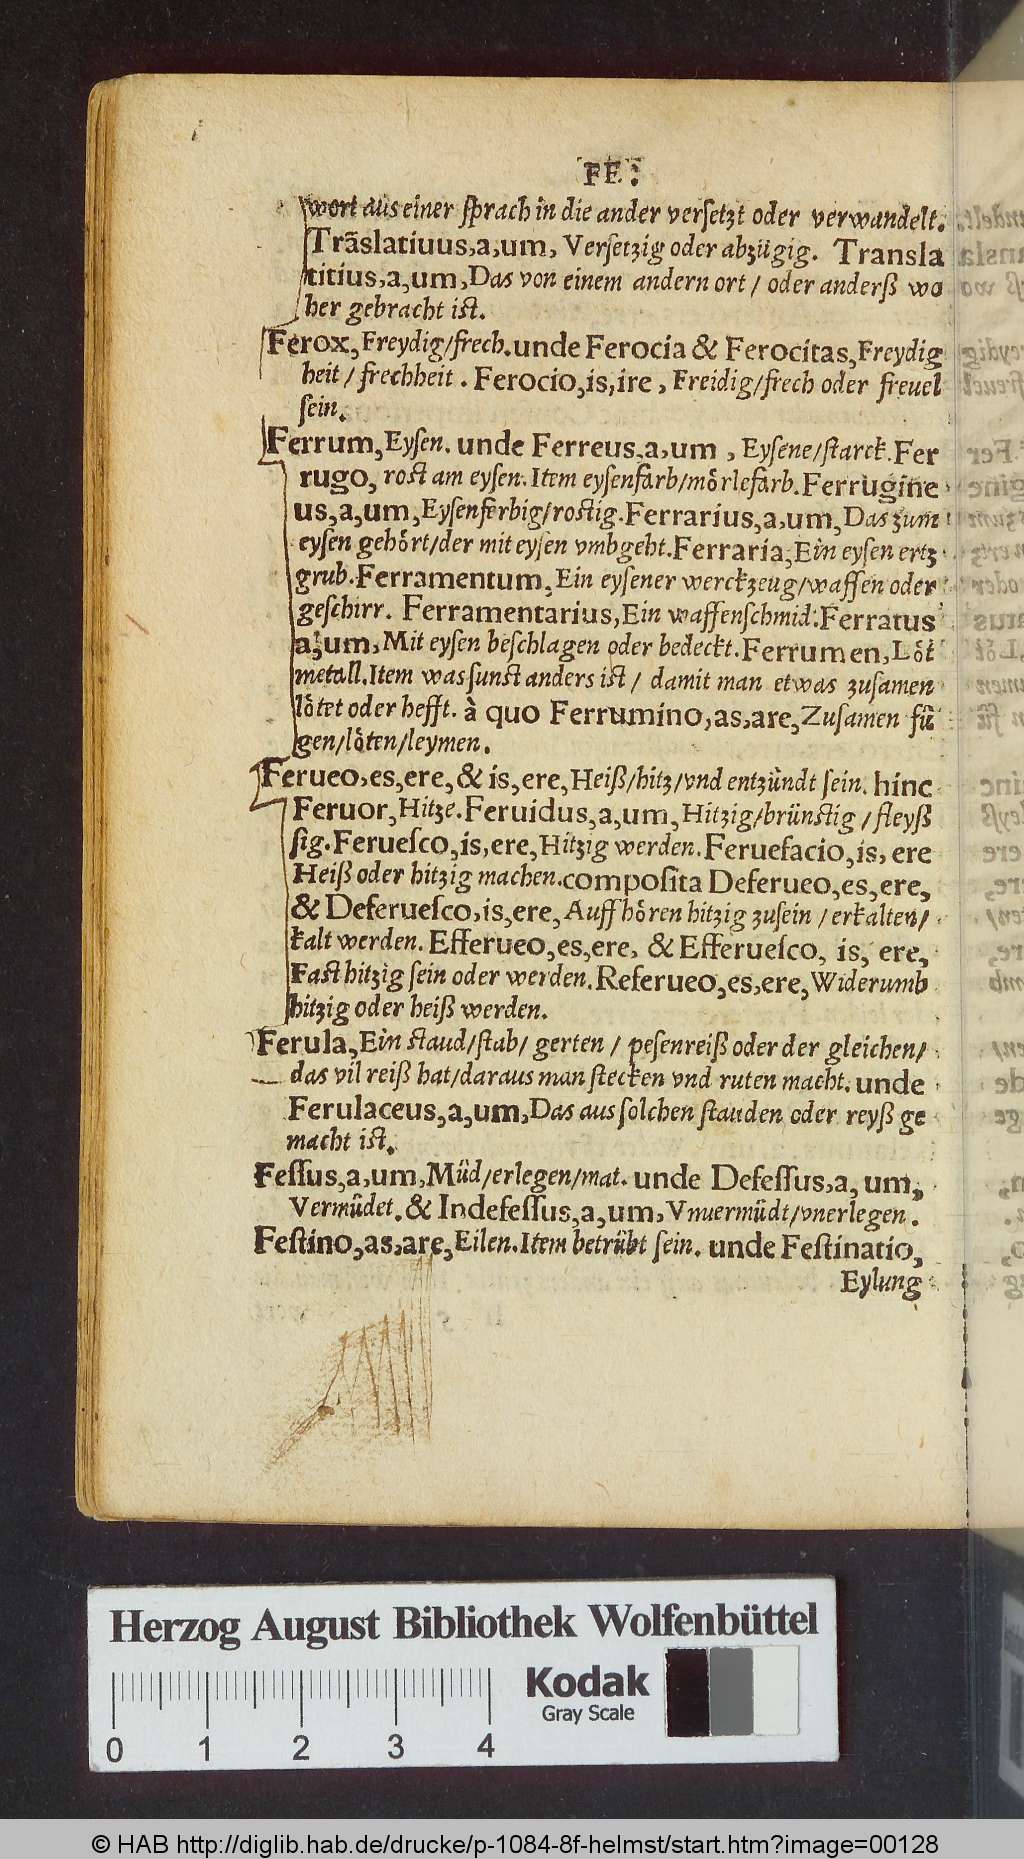 FE.
wort aus einer sprach in die ander versetzt oder verwandelt.
Trãslatiuus,a,um, Versetzig oder abzügig. Transla
titius,a,um, Das von einem andern ort / oder anderß wo
her gebracht ist.
Ferox, Freydig/frech. unde Ferocia & Ferocitas, Freydig
heit / frechheit. Ferocio,is,ire, Freidig/frech oder freuel
sein.
Ferrum, Eysen. unde Ferreus,a,um, Eysene/starck. Fer
rugo, rost am eysen. Item eysenfarb/mörlefarb. Ferrugine
us,a,um, Eysenferbig/rostig. Ferrarius,a,um, Das zum
eysen gehört/der mit eysen vmbgeht. Ferraria, Ein eysen ertz
grub. Ferramentum, Ein eysener werckzeug/waffen oder
geschirr. Ferramentarius, Ein waffenschmid. Ferratus
a,um, Mit eysen beschlagen oder bedeckt. Ferrumen, Löt
metall. Item was sunst anders ist / damit man etwas zusamen
lötet oder hefft. à quo Ferrumino,as,are, Zusamen fü
gen/löten/leymen.
Ferueo,es,ere, & is,ere, Heiß/hitz/vnd entzündt sein. hinc
Feruor, Hitze. Feruidus,a,um, Hitzig/brünstig / fleyß
sig. Ferueſco,is,ere, Hitzig werden. Feruefacio,is,ere
Heiß oder hitzig machen. compoſita Deferueo,es,ere,
& Deferueſco,is,ere, Auffhören hitzig zusein / erkalten/
kalt werden. Efferueo,es,ere, & Efferueſco, is, ere,
Fast hitzig sein oder werden. Referueo,es,ere, Widerumb
hitzig oder heiß werden.
Ferula, Ein staud/stab/ gerten / pesenreiß oder der gleichen/
das vil reiß hat/daraus man stecken vnd ruten macht. unde
Ferulaceus,a,um, Das aus solchen stauden oder reyß ge
macht ist.
Feſſus,a,um, Müd/erlegen/mat. unde Defeſſus,a,um,
Vermüdet. & Indefeſſus,a,um, Vnuermüdt/vnerlegen.
Feſtino,as,are, Eilen. Item betrübt sein. unde Feſtinatio,
Eylung
Herzog August Bibliothek Wolfenbüttel
Kodak
Gray Scale
0 1 2 3 4
© HAB http://diglib.hab.de/drucke/p-1084-8f-helmst/start.htm?image=00128